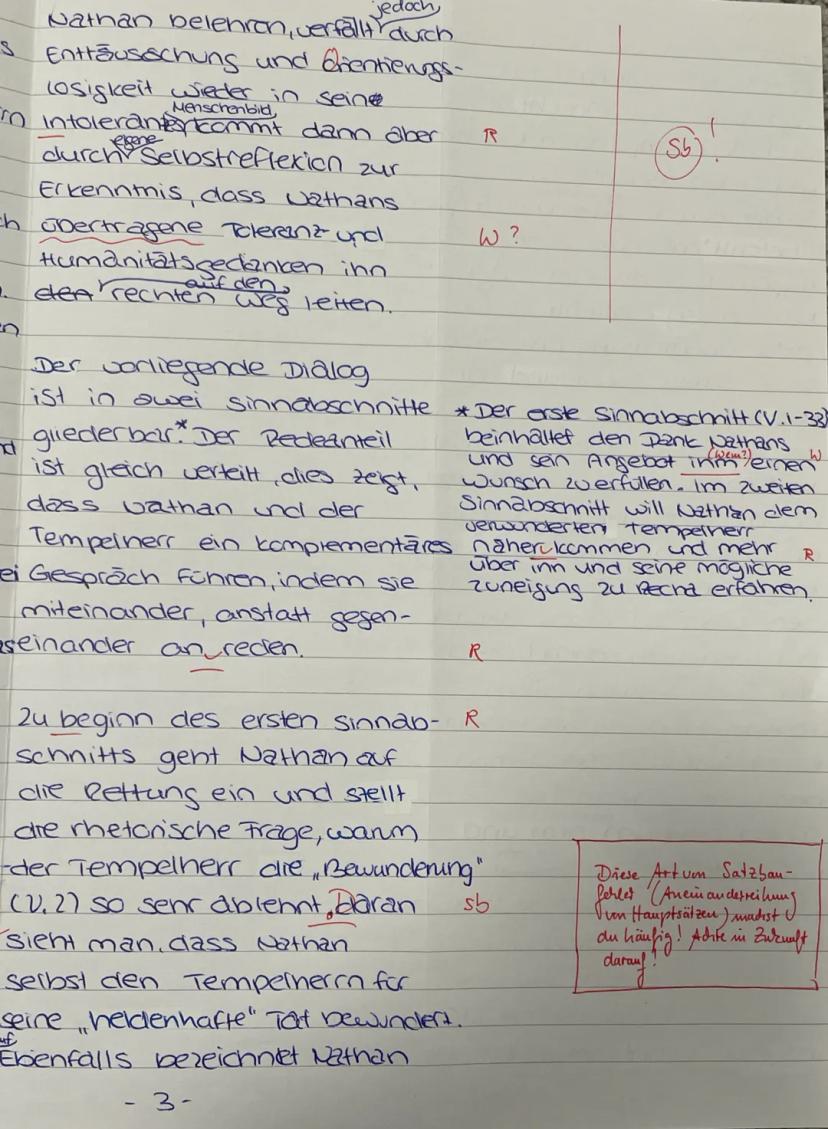 jedoch
Nathan belehren, verfällt durch
s Enttäusschung und Orientierungs-
losigkeit wieder in seine
Menschenbild,
rn intoleranter kommt dann aber R
eigene
durch Selbstreflexion zur
Erkenntnis, dass Nathans
h übertragene Toleranz und W ?
Humanitätsgedanken ihn
auf den
den rechten Weg leiten.
n
Sb !
Der vorliegende Dialog
ist in zwei Sinnabschnitte
gliederbar.* Der Redeanteil
ist gleich verteilt, dies zeigt,
dass Nathan und der
Tempelherr ein komplementäres
ei Gespräch führen, indem sie
miteinander, anstatt gegen-
seinander an reden. R
* Der erste Sinnabschnitt (V. 1-33)
beinhaltet den Dank Nathans
(Wem?)
und sein Angebot ihm einen W
Wunsch zu erfüllen. Im zweiten
Sinnabschnitt will Nathan dem
verwunderten Tempelherr
näher kommen und mehr R
über ihn und seine mögliche
Zuneigung zu Recha erfahren.
Zu beginn des ersten Sinnab- R
schnitts geht Nathan auf
die Rettung ein und stellt
die rhetorische Frage, warum
der Tempelherr die „Bewunderung"
(V. 2) so sehr ablehnt. Daran sb
sieht man, dass Nathan
selbst den Tempelherrn für
seine „heldenhafte" Tat bewundert.
Ebenfalls bezeichnet Nathan
Diese Art von Satzbau-
fehler (Aneinanderreihung
von Hauptsätzen) machst
du häufig! Achte in Zukunft
darauf!
- 3 -